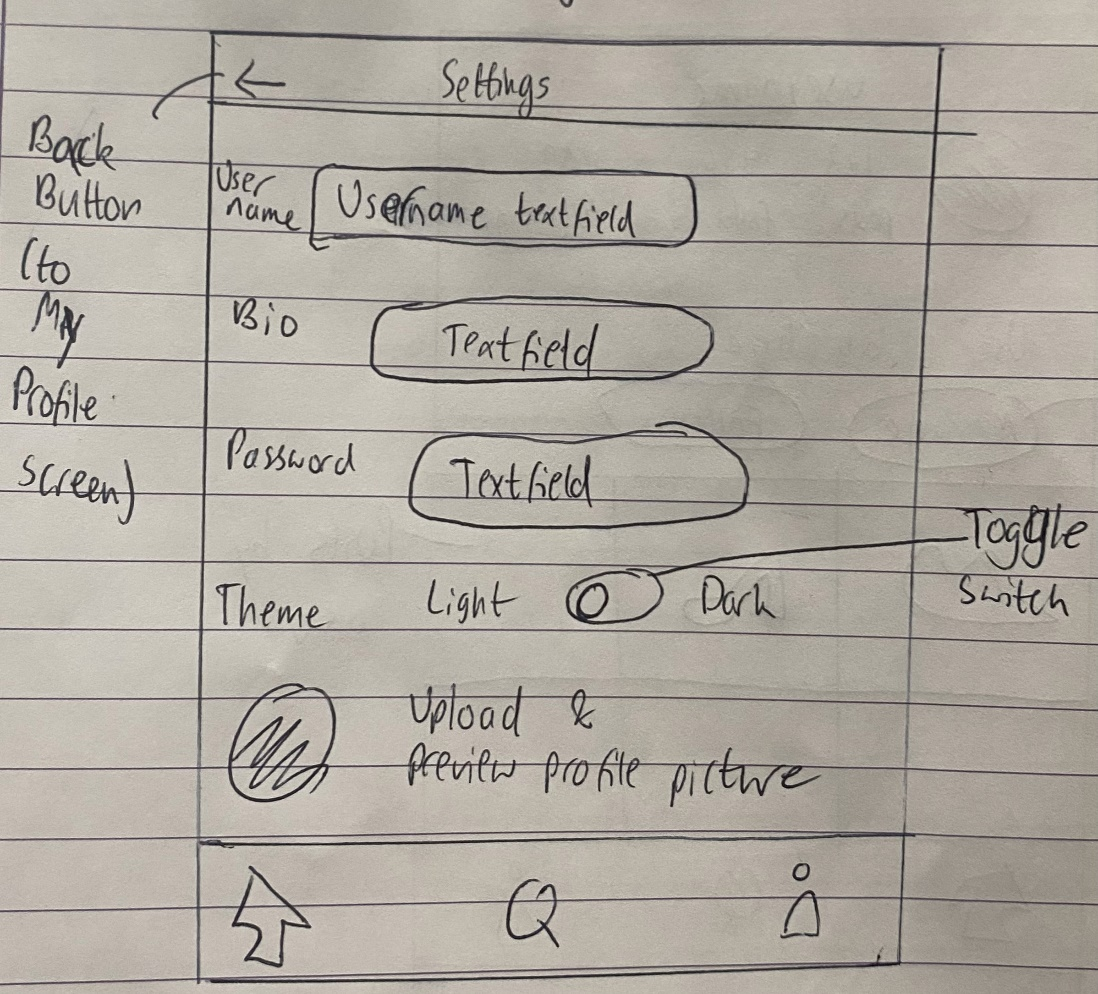 Settings
Back
Button
(to
My
Profile
Screen)
User
name
Username textfield
Bio
Textfield
Password
Textfield
Theme
Light
Dark
Toggle
Switch
Upload &
preview profile picture